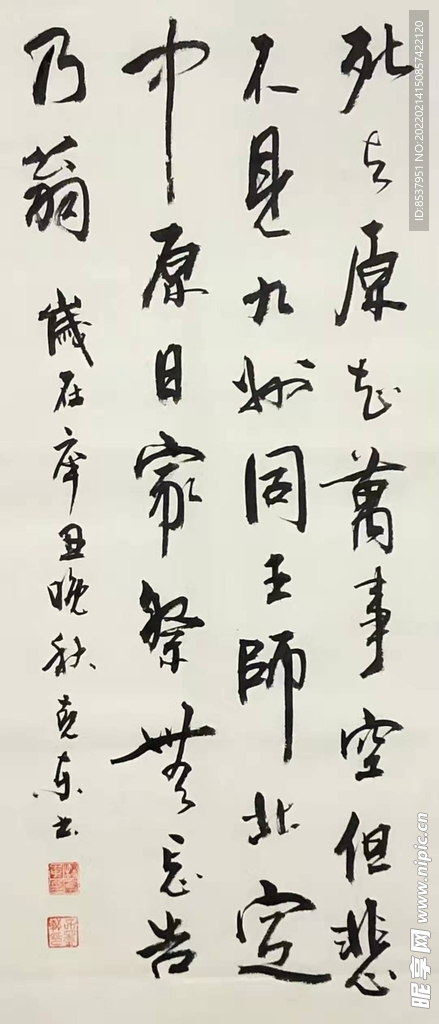 死去原知萬事空但悲
不見九州同王師北定
中原日家祭無忘告
乃翁
歲在辛丑晚秋克东书
ID:8537951 NO:20220214150857422120
昵享网 www.nipic.cn